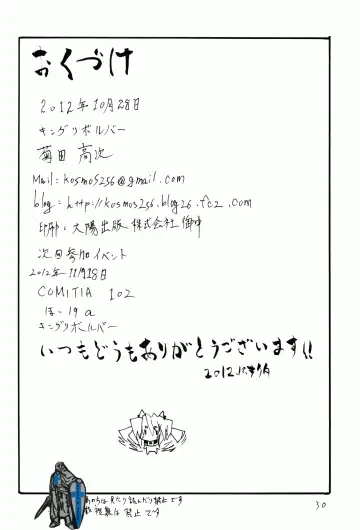 おくづけ
2012年10月28日
キングリボルバー
菊田 高次
Mail: kosmos256@gmail.com
blog: http://kosmos256.blog26.fc2.com
印刷: 大陽出版株式会社御中
次回参加イベント
2012年11月18日
COMITIA 102
ほ-19a
キングリボルバー
いつもどうもありがとうございます!!
2012
見たり読んだり禁止です
複製は禁止です
30